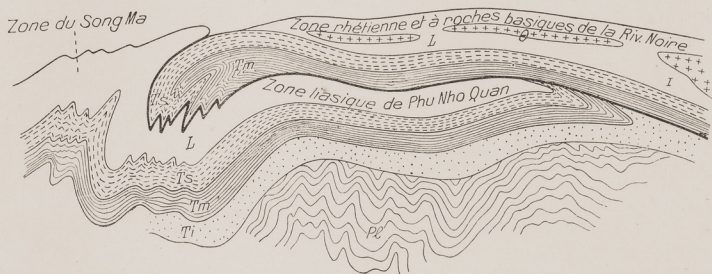 Zone du Song Ma
Zone rhétienne et à roches basiques de la Riv. Noire
L
Tm
Ts
Zone liasique de Phu Nho Quan
I
L
Ts
Tm
Ti
Pl